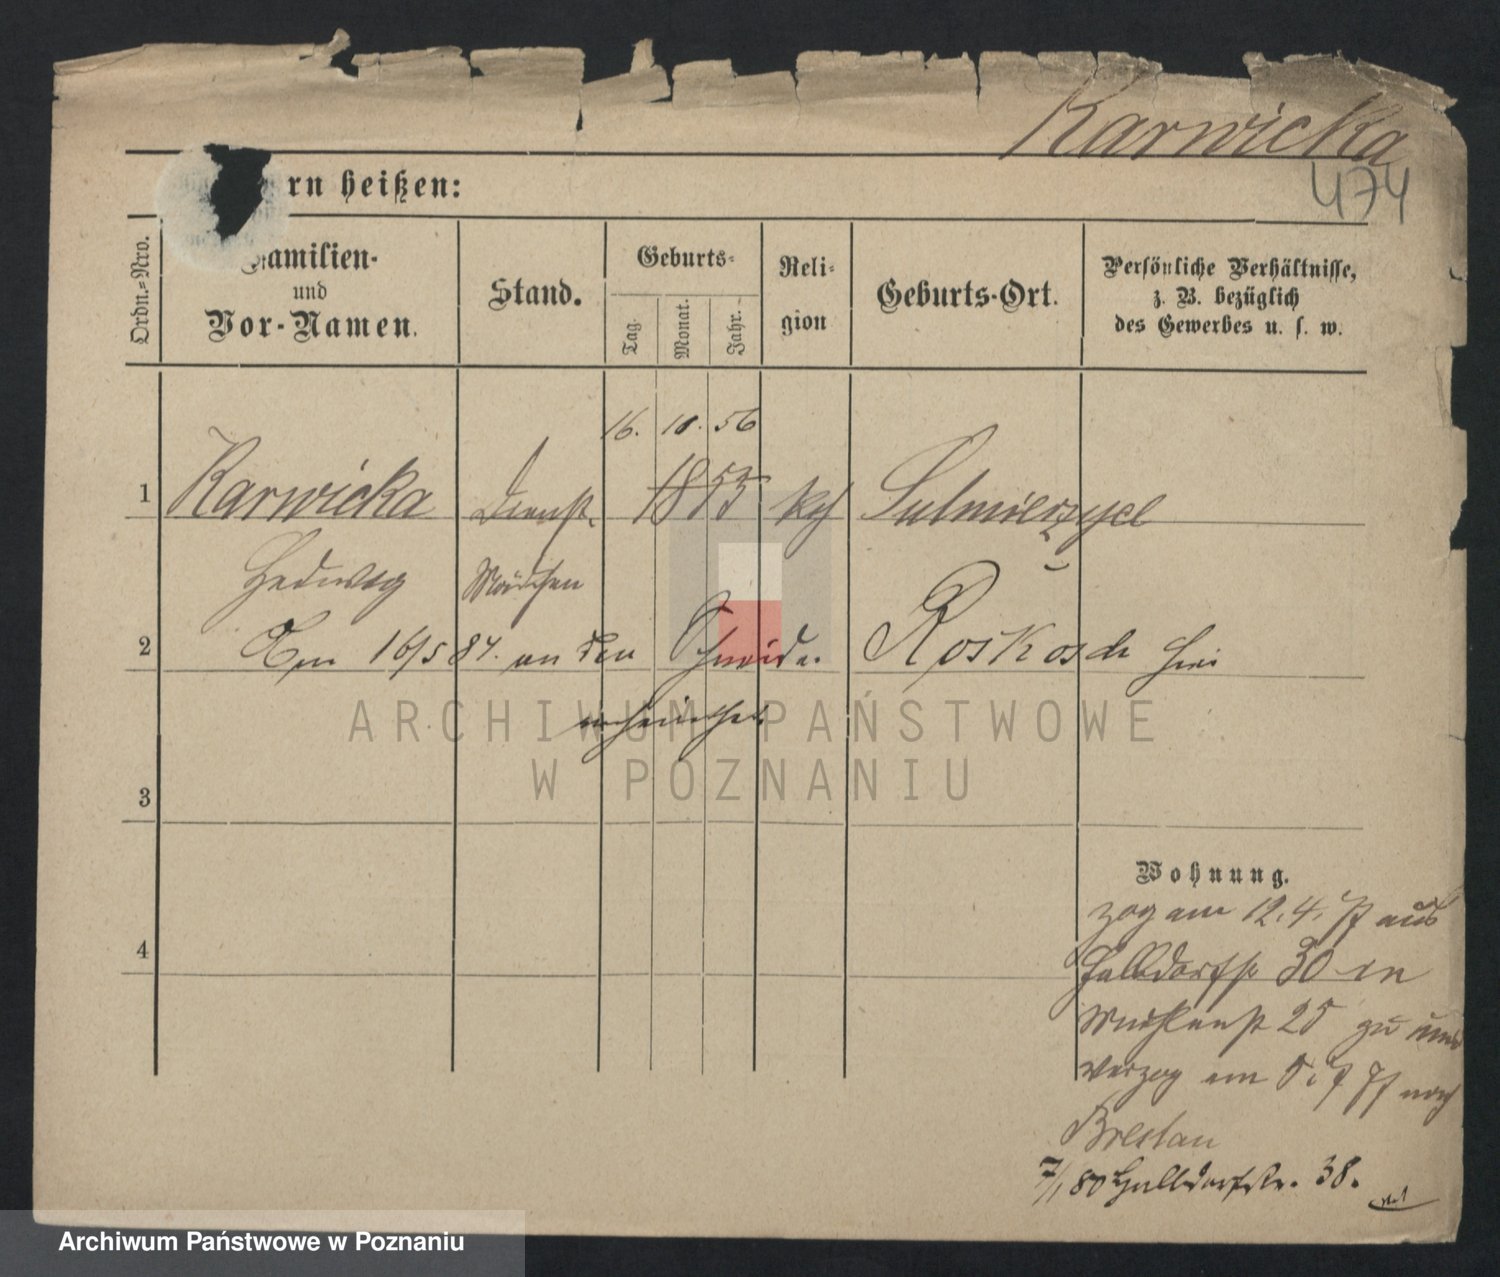 Karwicka
474
rn heißen:
Ordn.-Nro.
Familien-
und
Vor-Namen.
Stand.
Geburts-
Tag.
Monat.
Jahr.
Reli-
gion
Geburts-Ort.
Persönliche Verhältnisse,
z. B. bezüglich
des Gewerbes u. s. w.
16. 10. 56
1 Karwicka Dienst- 1855 kth Sulmierzyce
Hedwig Mädchen
2 Am 16/5 84. an den Schneider Roskosch hier
verheirathet.
ARCHIWUM PAŃSTWOWE
W POZNANIU
3
Wohnung.
zog am 12. 4. 77 aus
4
Halbdorfstr 30 in
25 zu
verzog am nach
Breslau
7/1 80 Halbdorfstr. 38.
Archiwum Państwowe w Poznaniu